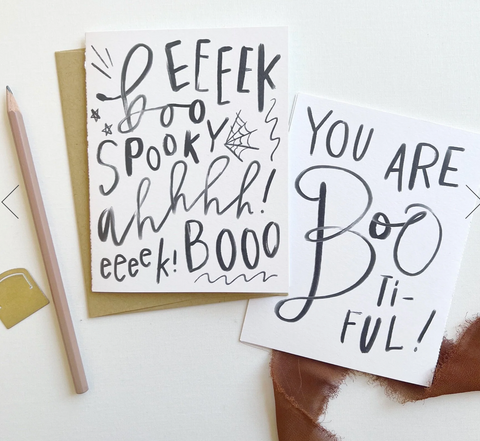 EEEEEK
boo
SPOOKY
ahhhh!
eeeek! BOOO
YOU ARE
BOO
Ti-
FUL!